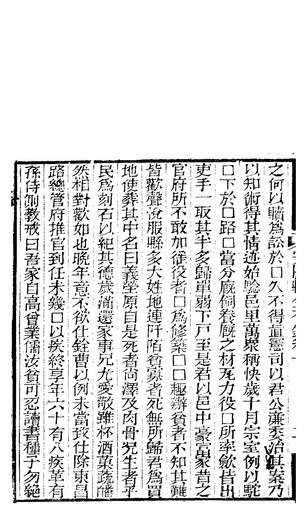 之何以贖為訟於□久不得直憲司以君公廉委治其案乃
以知術得其情迹始騐邑里萬衆稱快歲十月宗室例以駝
□下於□路□當分廐飼卷廐之材瓦力役□所率斂皆出
吏手一取其半多歸單弱下戶至是君以邑中豪萬家昔之
官府所不敢加徭役者□為修築□□趣辦貧者不知其難
皆歡聲悅服縣多大姓地連阡陌貧寠者死無所歸君為買
地使葬其中名曰義塋原自是死者尚澤及肉骨况生者乎
民為刻石以紀其德歲滿還家事兄尤愛敬雖杯酒菜蔬
然相對歡如也晚年意不欲仕銓曹以例未當致仕除東昌
路緫管府推官到任未幾□以疾終享年六十有八疾革有
孫侍側教戒曰吾家自高曾業儒汝貧可忍讀書種子勿絕